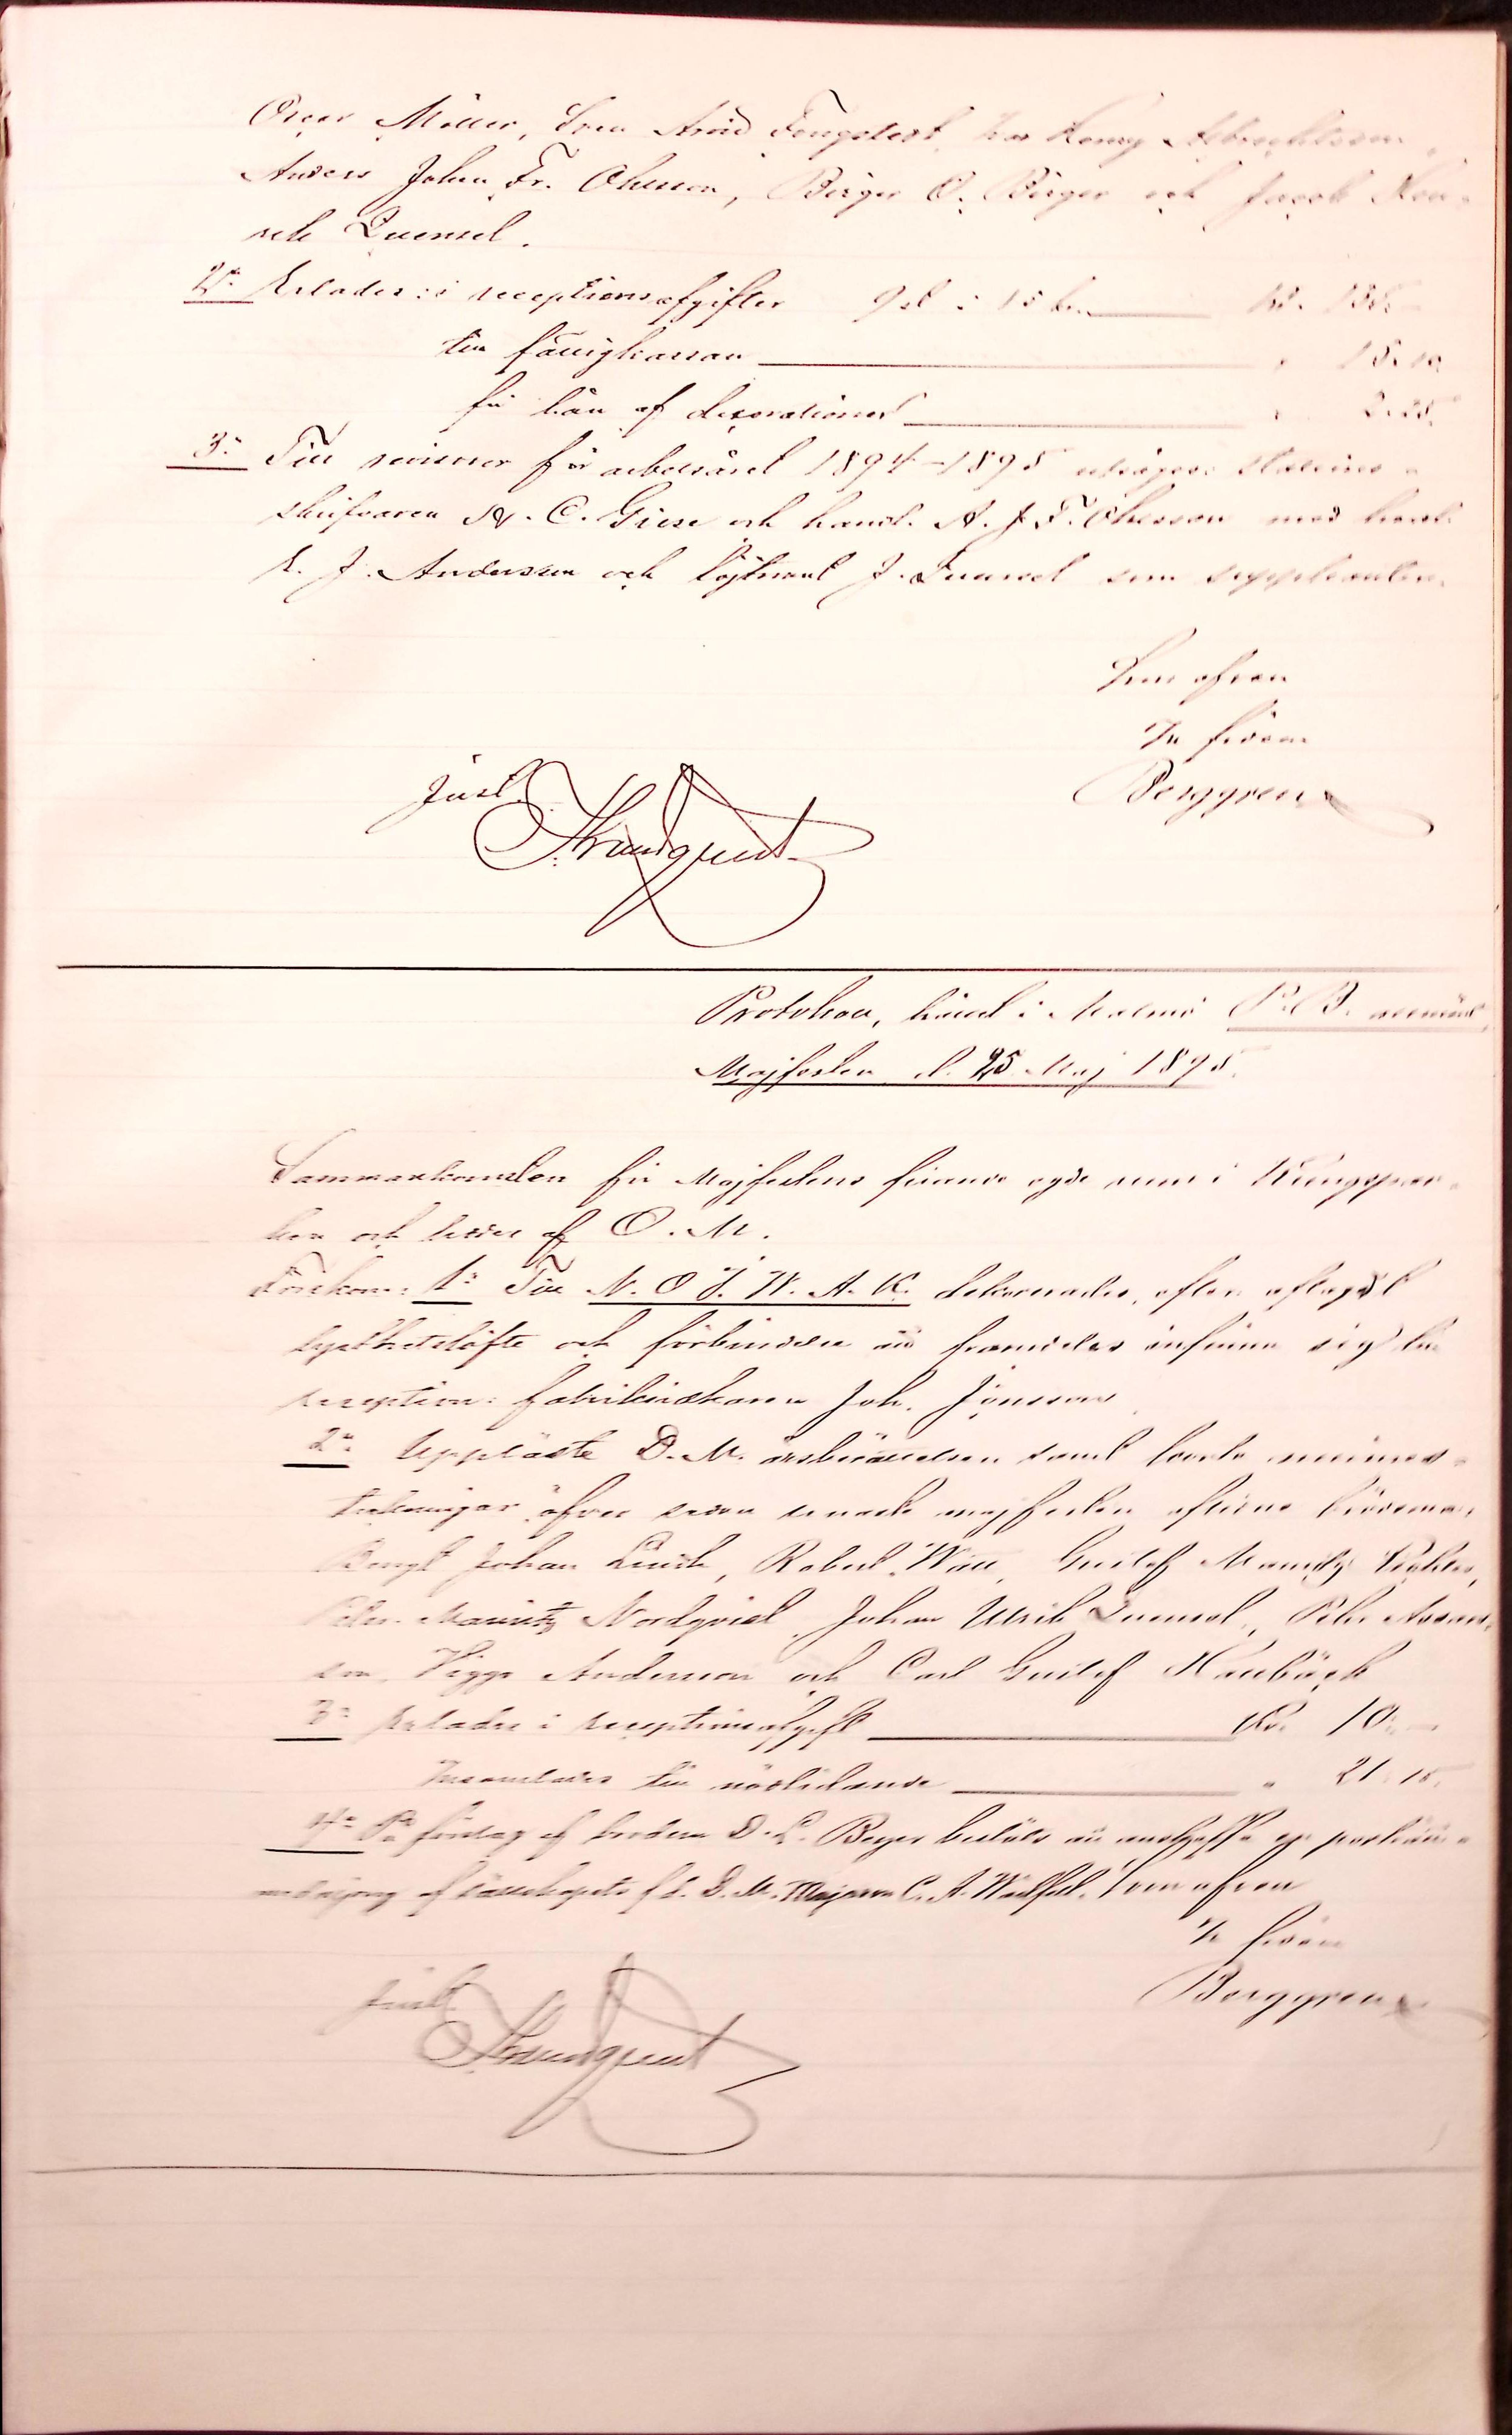 Oscar Möller, Sven Arvid Tengstedt, Lars Henry Albrechtsson,
Anders Johan Fr. Ohlsson, Birger O. Birger och Jacob Hen-
rik Quensel.
2o Erlades: i receptionsafgifter 9 st à 15 kr. Kr. 135:-
till fattigkassan " 15.10
för lån af dekorationer " 2.25.
3o Till revisorer för arbetsåret 1894-1895 utsågos:
skrifvaren N. C. Giese och handl. A. J. F. Ohlsson med handl.
E. J. Andersson och löjtnant J. Quensel som suppleanter.
Som ofvan
In fidem
Berggren
Just.
Strandquist
Protokoll, hållet i Malmö P. B. vid
Majfesten d. 25 Maj 1895.
Sammankomsten för Majfestens firande egde rum i Kungspar-
ken och leddes af O. M.
Förekom: 1o Till N. O. J. W. A. K. dekorerades, efter aflagdt
tysthetslöfte och förbindelse att framdeles infinna sig till
reception: fabriksidkaren Joh. Jönsson
2o Uppläste D. M. årsberättelsen samt korta minnes-
teckningar öfver sedan senaste majfesten aflidne bröderna:
Bengt Johan Linde, Robert Will, Gustaf Mauritz Richter,
Peter Mauritz Nordqvist, Johan Ulrik Quensel, Pehr
son, Viggo Anderson och Carl Gustaf Hallbäck
3o Erlades i receptionsafgift Kr. 10:-
Insamlades till nödlidande " 21.15.
4o På förslag af brodern D. L. Beyer beslöts att anskaffa ett porträtt
af sällskapets f. d. D. M. Majoren C. A. Som ofvan
In fidem
Berggren
Just.
Strandquist